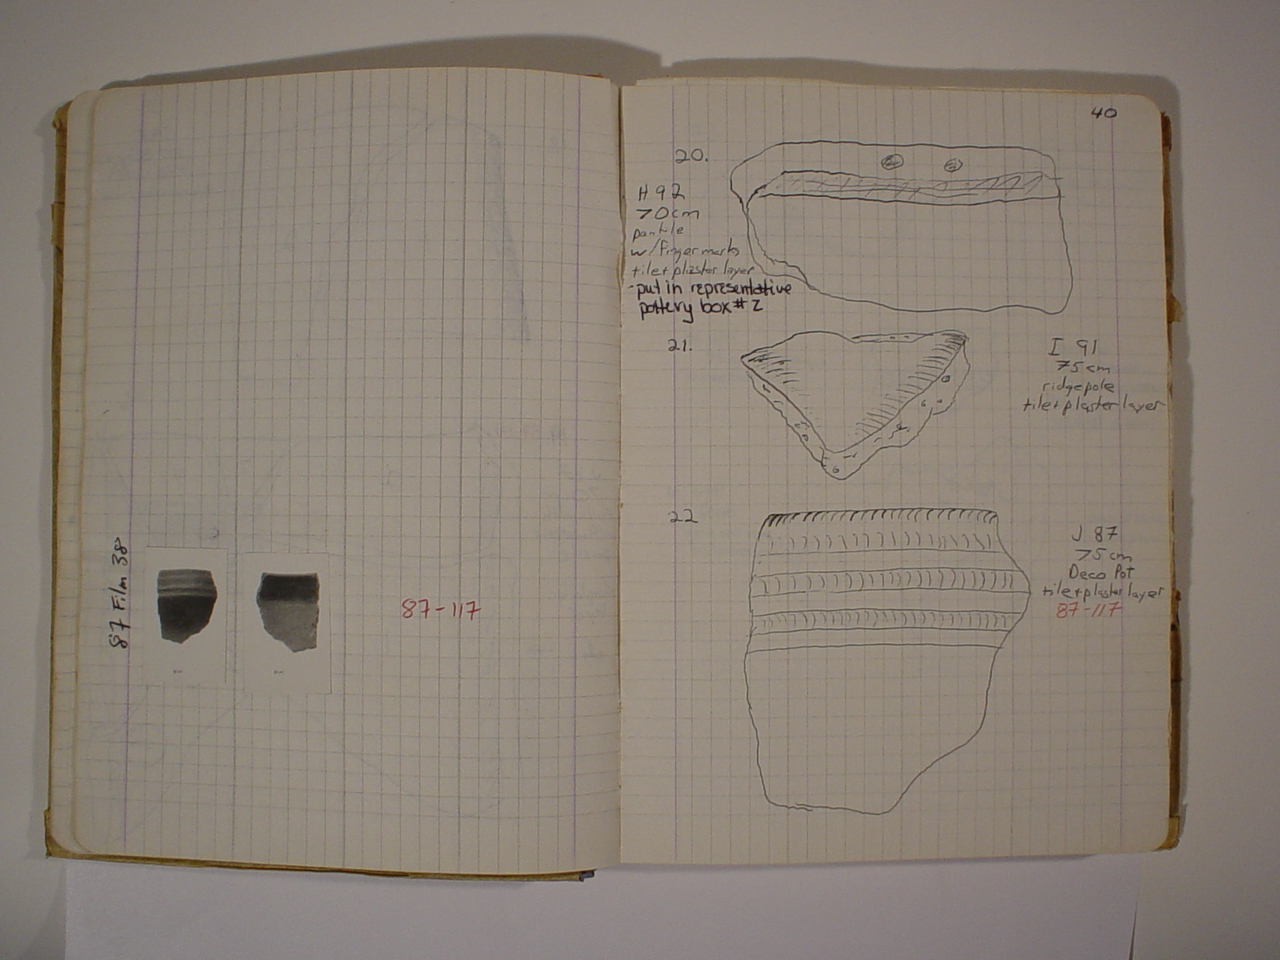 87 Film 38
87-117
40
20.
H 92
70cm
pantile
w/finger marks
tile + plaster layer
-put in representative
pottery box # 2
21.
I 91
75cm
ridgepole
tile + plaster layer
22
J 87
75cm
Deco Pot
tile + plaster layer
87-117